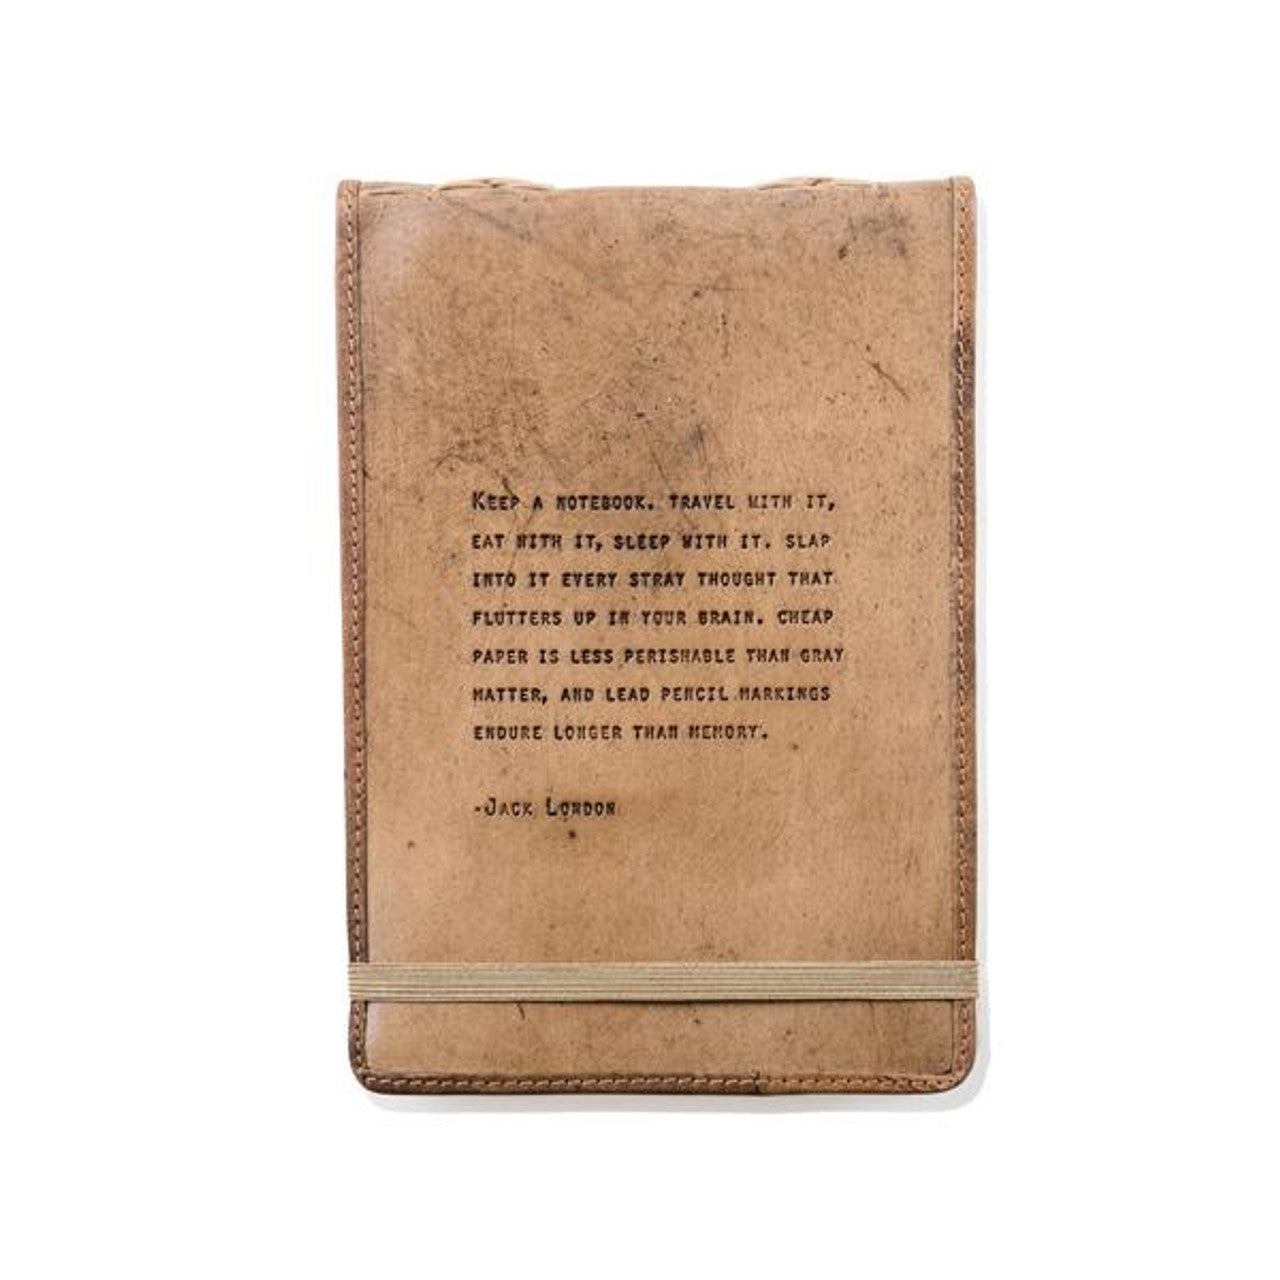 Keep a notebook. travel with it,
eat with it, sleep with it. slap
into it every stray thought that
flutters up in your brain. cheap
paper is less perishable than gray
matter, and lead pencil markings
endure longer than memory.
-Jack London